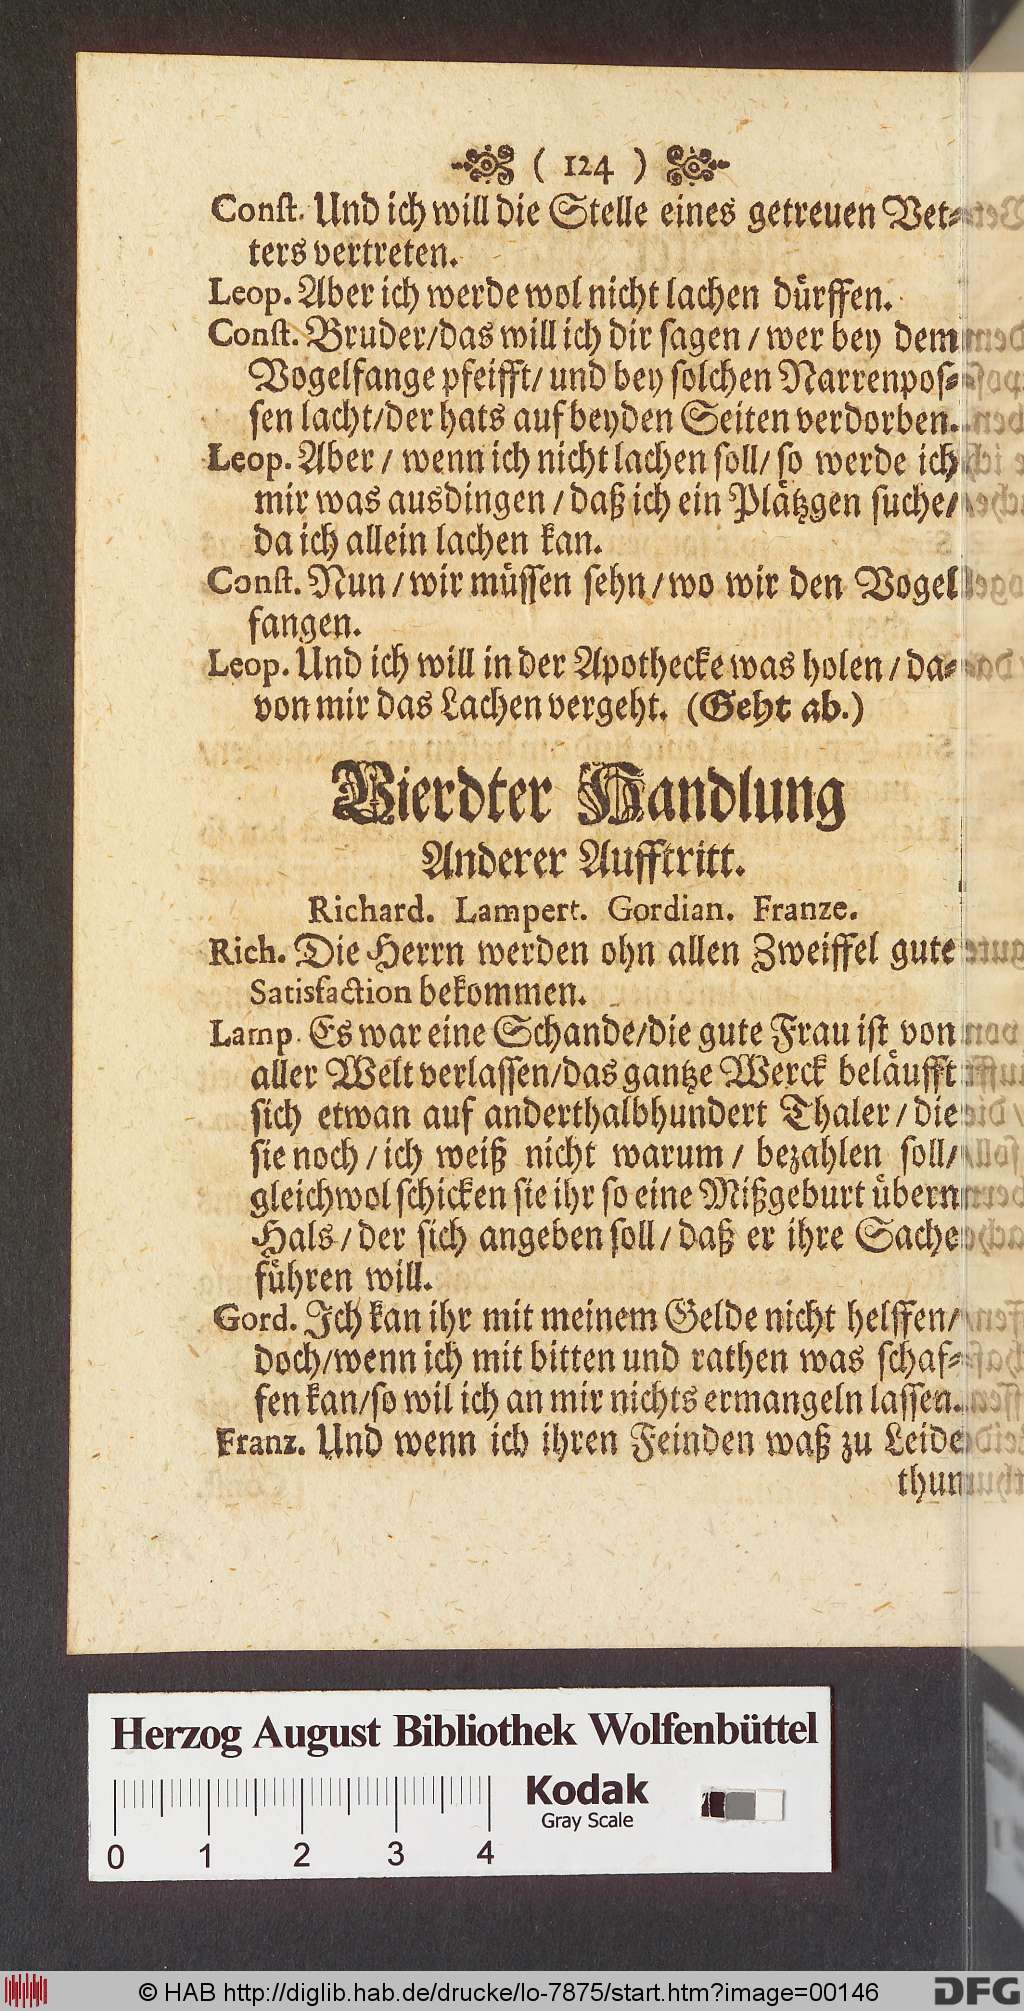 ( 124 )
Const. Und ich will die Stelle eines getreuen Vet-
ters vertreten.
Leop. Aber ich werde wol nicht lachen dürffen.
Const. Bruder/das will ich dir sagen / wer bey dem
Vogelfange pfeifft/ und bey solchen Narrenpos-
sen lacht/der hats auf beyden Seiten verdorben.
Leop. Aber / wenn ich nicht lachen soll/ so werde ich
mir was ausdingen / daß ich ein Plätzgen suche/
da ich allein lachen kan.
Const. Nun / wir müssen sehn / wo wir den Vogel
fangen.
Leop. Und ich will in der Apothecke was holen / da-
von mir das Lachen vergeht. (Geht ab.)
Vierdter Handlung
Anderer Aufftritt.
Richard. Lampert. Gordian. Franze.
Rich. Die Herrn werden ohn allen Zweiffel gute
Satisfaction bekommen.
Lamp. Es war eine Schande/die gute Frau ist von
aller Welt verlassen/das gantze Werck beläufft
sich etwan auf anderthalbhundert Thaler / die
sie noch / ich weiß nicht warum / bezahlen soll/
gleichwol schicken sie ihr so eine Mißgeburt übern
Hals / der sich angeben soll / daß er ihre Sache
führen will.
Gord. Ich kan ihr mit meinem Gelde nicht helffen/
doch/wenn ich mit bitten und rathen was schaf-
fen kan/so wil ich an mir nichts ermangeln lassen.
Franz. Und wenn ich ihren Feinden waß zu Leide
thun
Herzog August Bibliothek Wolfenbüttel
Kodak
Gray Scale
0 1 2 3 4
© HAB http://diglib.hab.de/drucke/lo-7875/start.htm?image=00146
DFG